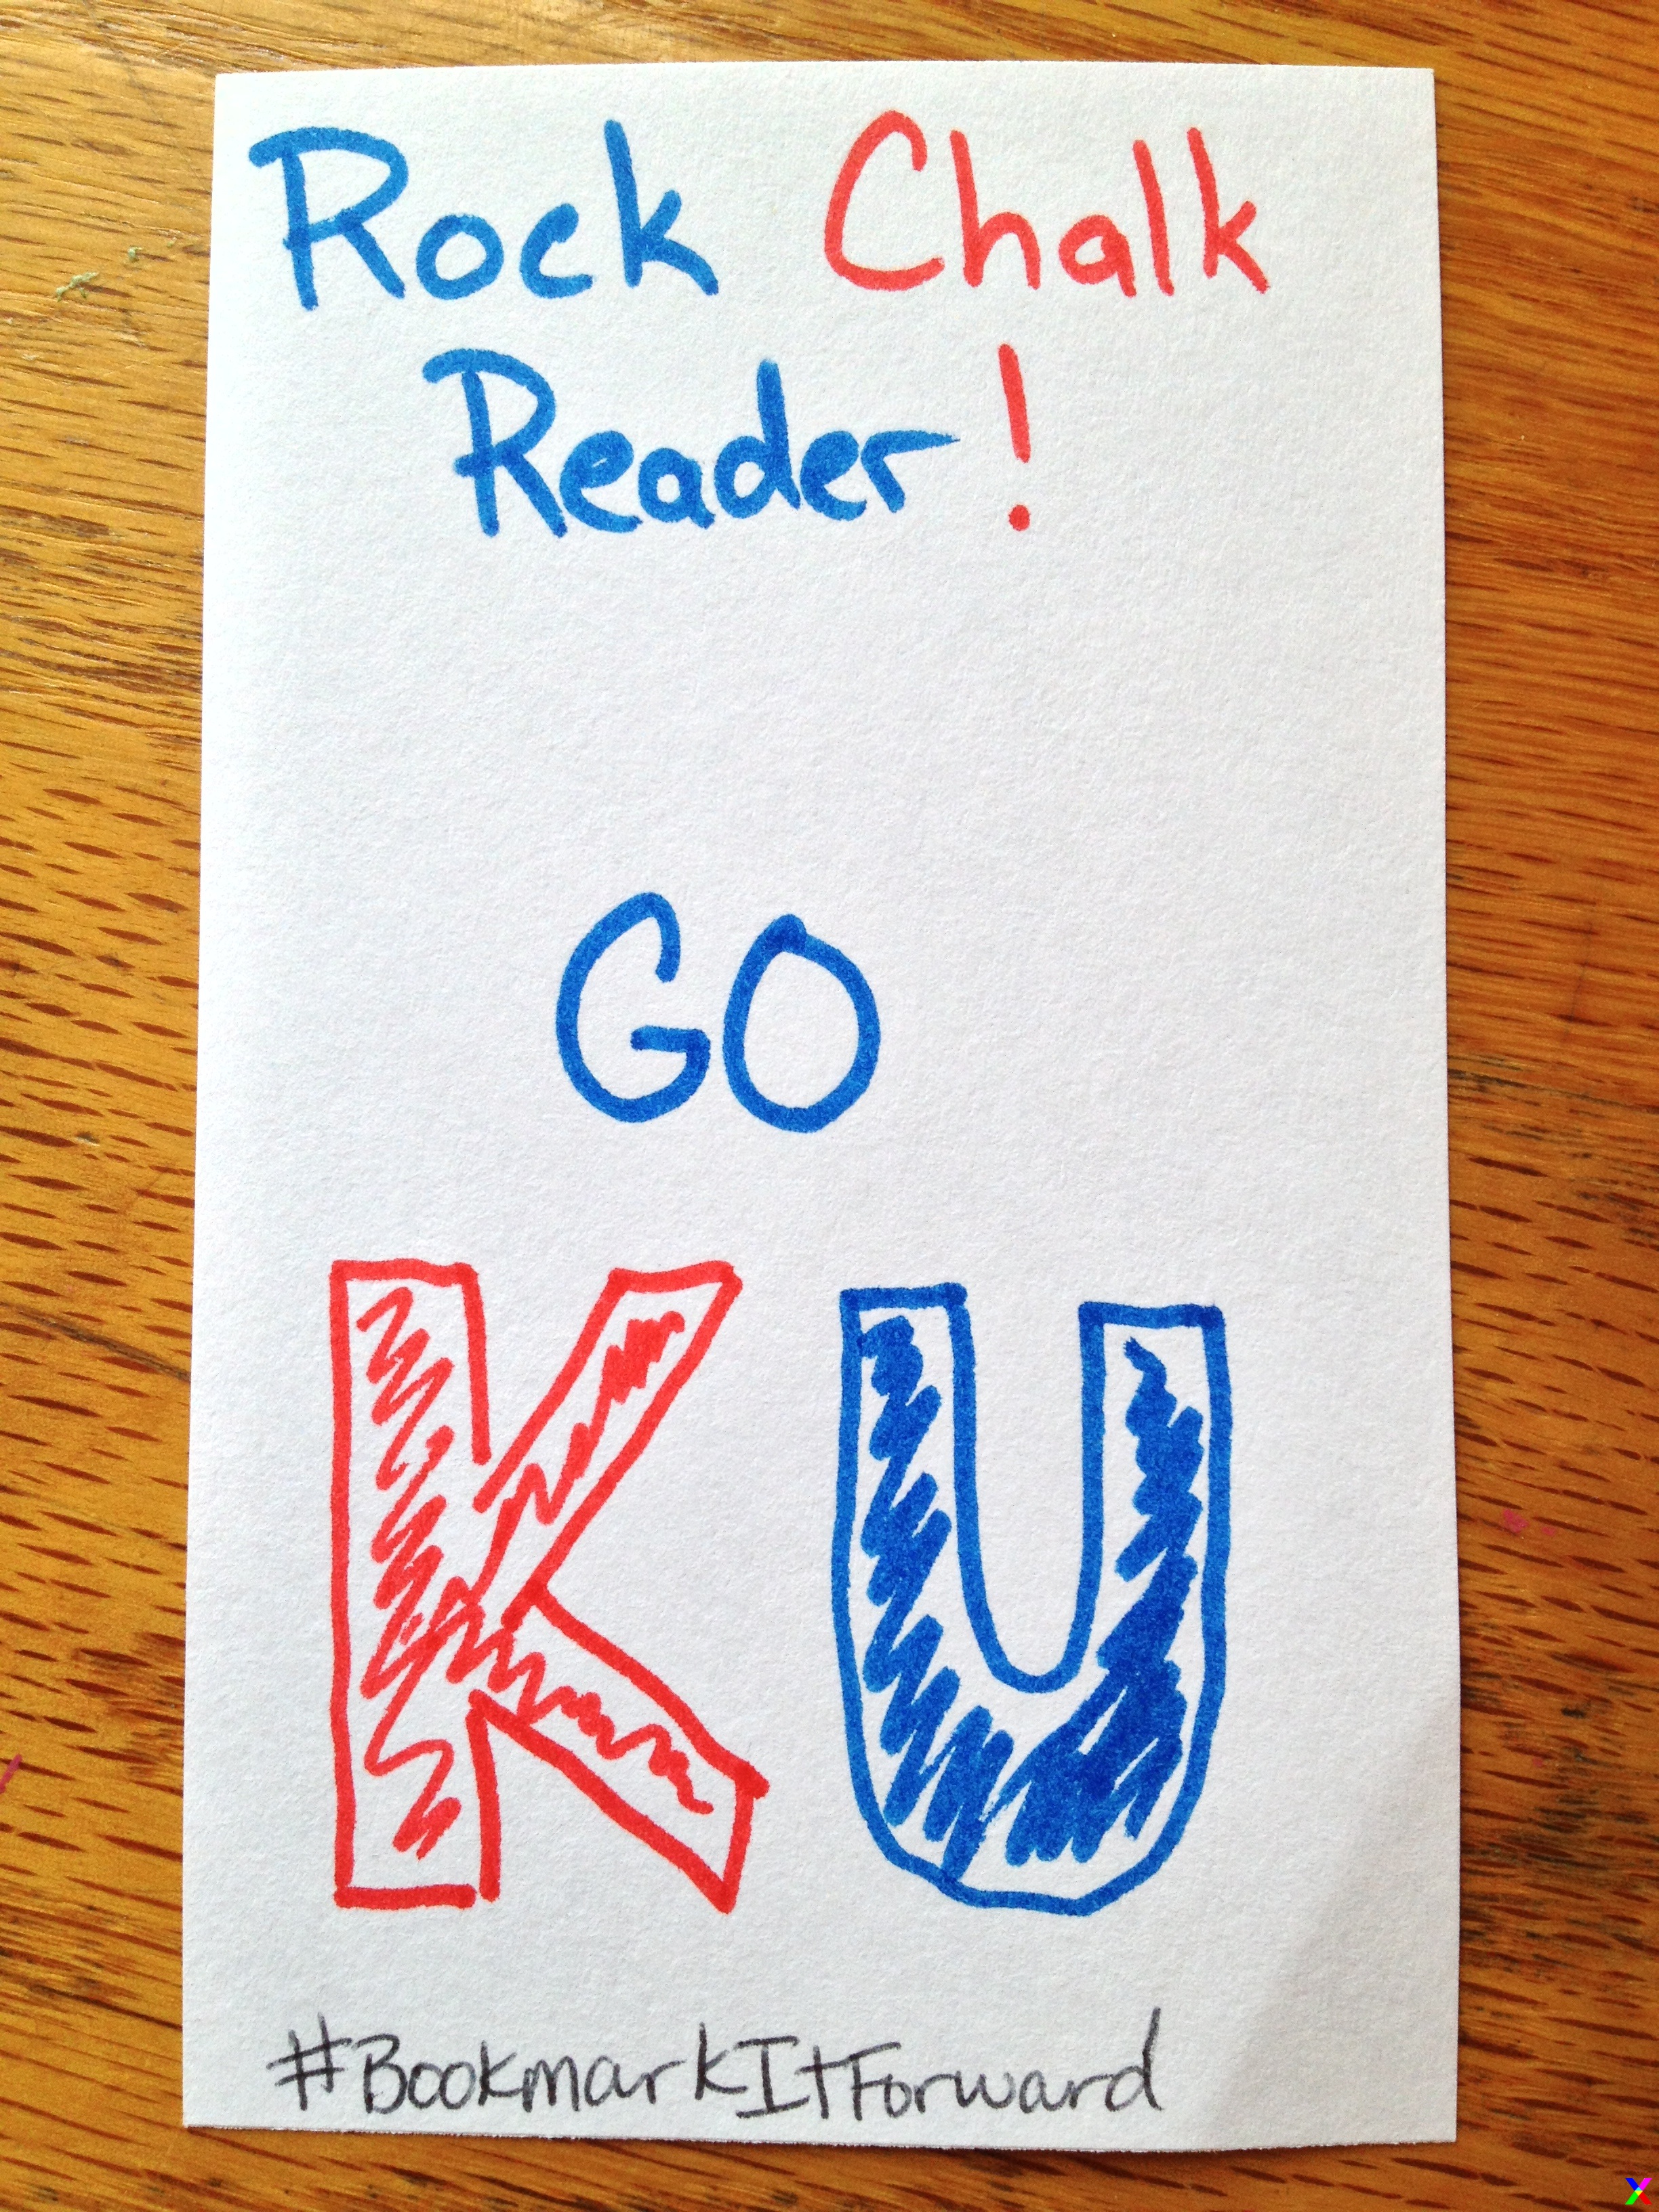 Rock Chalk
Reader!
GO
KU
#BookmarkItForward